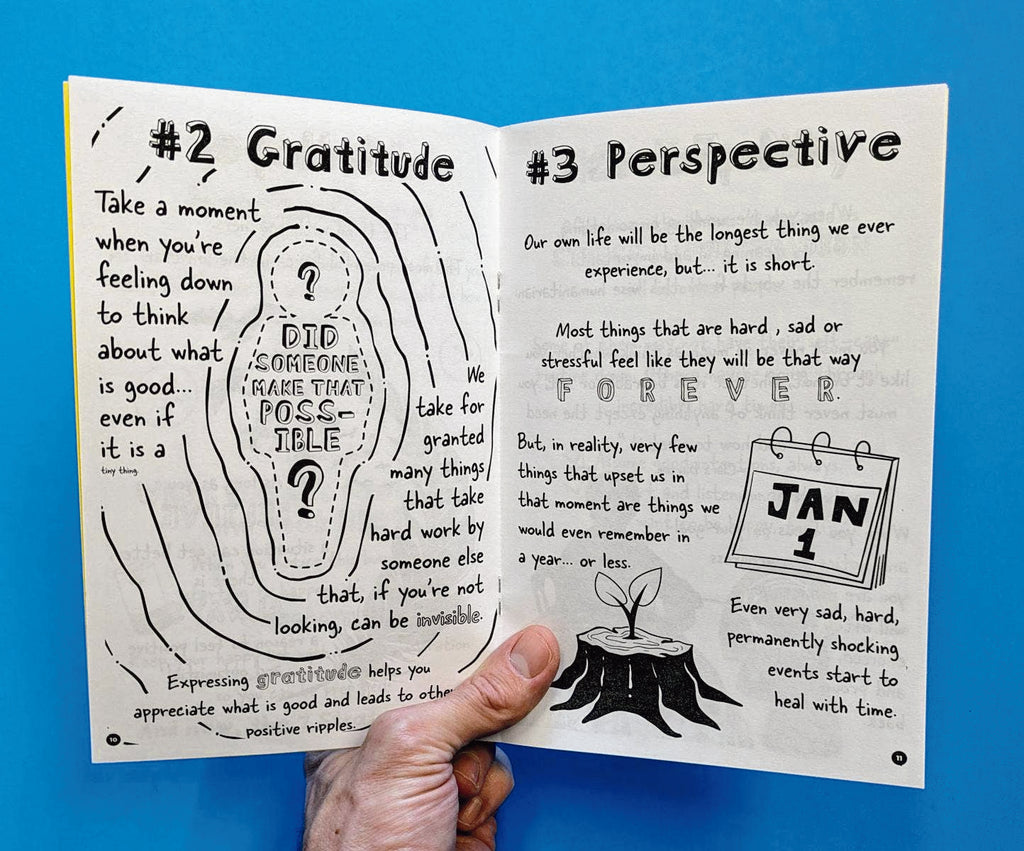 #2 Gratitude
Take a moment
when you're
feeling down
to think
about what
is good...
even if
it is a
tiny thing.
?
DID
SOMEONE
MAKE THAT
POSS-
IBLE
?
We
take for
granted
many things
that take
hard work by
someone else
that, if you're not
looking, can be invisible.
Expressing gratitude helps you
appreciate what is good and leads to other
positive ripples.
10
#3 Perspective
Our own life will be the longest thing we ever
experience, but... it is short.
Most things that are hard, sad or
stressful feel like they will be that way
FOREVER.
But, in reality, very few
things that upset us in
that moment are things we
would even remember in
a year... or less.
JAN
1
Even very sad, hard,
permanently shocking
events start to
heal with time.
11